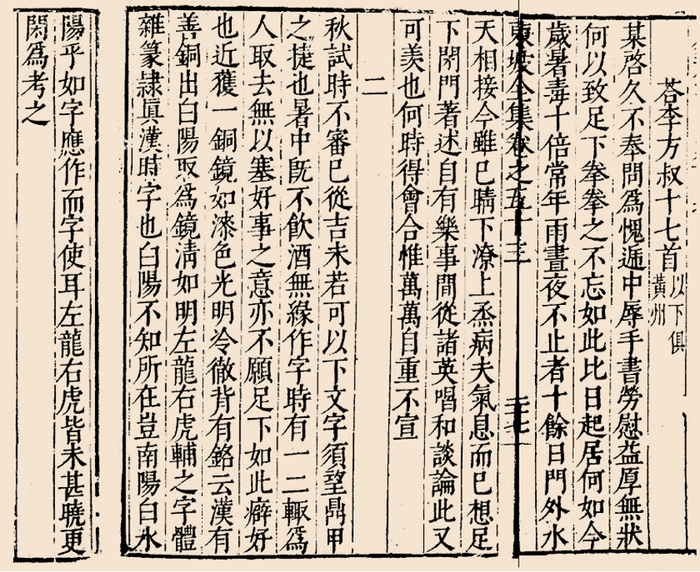 荅李方叔十七首 以下俱黃州
某啓久不奉問爲愧遞中辱手書勞慰益厚無狀
何以致足下拳拳之不忘如此比日起居何如今
歲暑毒十倍常年雨晝夜不止者十餘日門外水
東坡全集卷之五十三
天相接今雖已晴下潦上烝病夫氣息而已想足
下閉門著述自有樂事間從諸英唱和談論此又
可羙也何時得會合惟萬萬自重不宣
二
秋試時不審已從吉未若可以下文字須望鼎甲
之捷也暑中旣不飲酒無緣作字時有一二輒爲
人取去無以塞好事之意亦不願足下如此癖好
也近獲一銅鏡如漆色光明冷徹背有銘云漢有
善銅出白陽取爲鏡淸如明左龍右虎輔之字體
雜篆隷眞漢時字也白陽不知所在豈南陽白水
陽乎如字應作而字使耳左龍右虎皆未甚曉更
閑爲考之